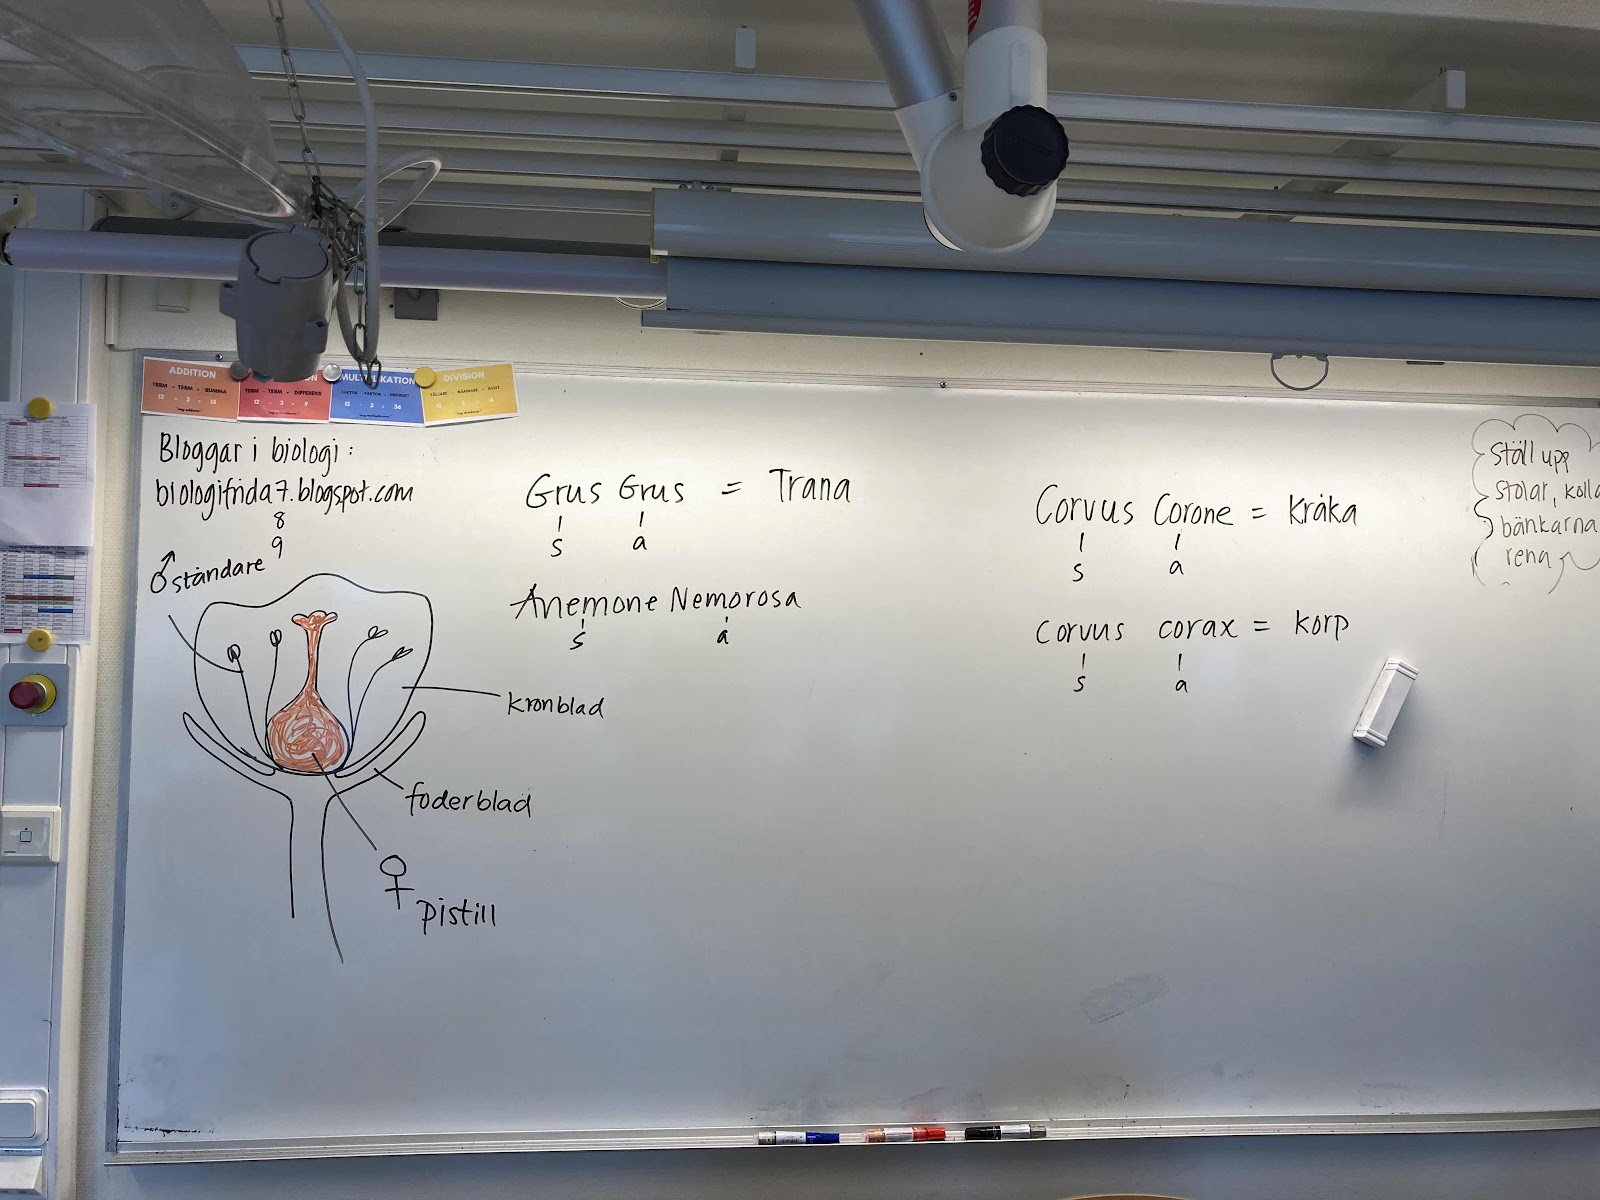 ADDITION
TERM + TERM = SUMMA
12 + 3 = 15
TERM - TERM = DIFFERENS
12 - 3 = 9
FAKTOR · FAKTOR = PRODUKT
12 · 3 = 36
DIVISION
Bloggar i biologi:
biologifrida7.blogspot.com
8
9
♂ståndare
kronblad
foderblad
♀
pistill
Grus Grus = Trana
s a
Anemone Nemorosa
s a
Corvus Corone = Kråka
s a
corvus corax = korp
s a
Ställ upp
stolar, kolla
bänkarna
rena